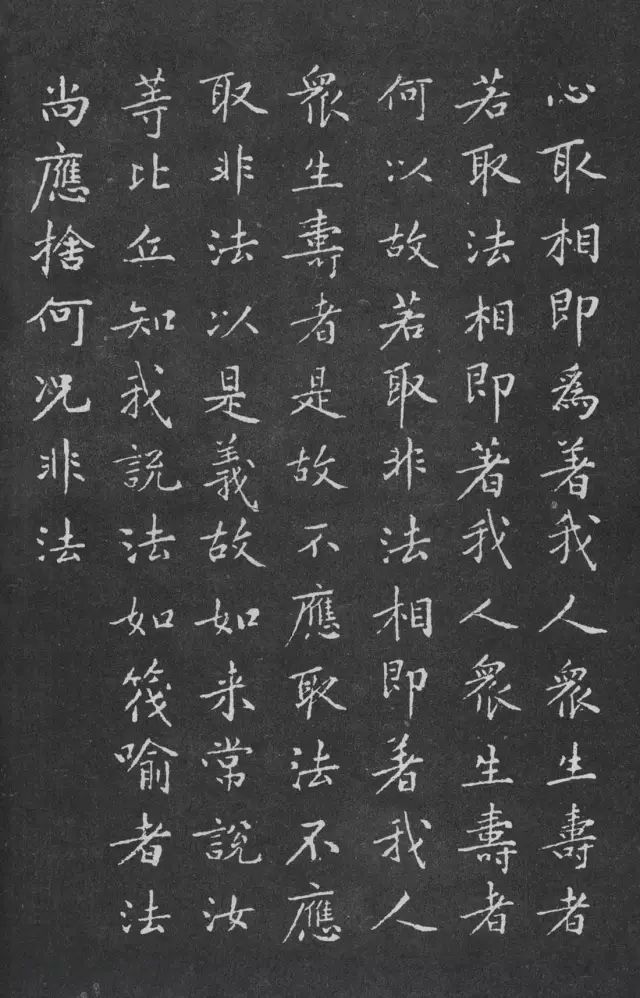 心取相即為著我人衆生壽者
若取法相即著我人衆生壽者
何以故若取非法相即著我人
衆生壽者是故不應取法不應
取非法以是義故如来常說汝
等比丘知我説法如筏喻者法
尚應捨何况非法